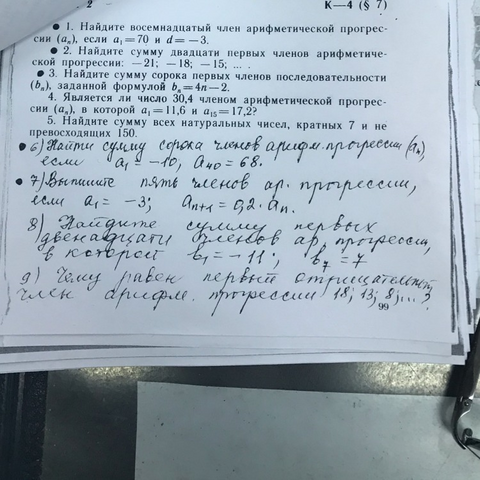 2 К—4 (§ 7)
● 1. Найдите восемнадцатый член арифметической прогрес-
сии (aₙ), если a₁=70 и d=−3.
● 2. Найдите сумму двадцати первых членов арифметиче-
ской прогрессии: −21; −18; −15; ... .
● 3. Найдите сумму сорока первых членов последовательности
(bₙ), заданной формулой bₙ=4n−2.
4. Является ли число 30,4 членом арифметической прогрес-
сии (aₙ), в которой a₁=11,6 и a₁₅=17,2?
5. Найдите сумму всех натуральных чисел, кратных 7 и не
превосходящих 150.
● 6) Найти сумму сорока членов арифм. прогрессии (aₙ),
если a₁ = −10, a₄₀ = 68.
● 7) Выпишите пять членов ар. прогрессии,
если a₁ = −3; aₙ₊₁ = 0,2·aₙ.
8) Найдите сумму первых
двенадцати членов ар. прогрессии,
в которой b₁ = −11; b₇ = 7
9) Чему равен первый отрицательный
член арифм. прогрессии 18; 13; 8;... ?
99